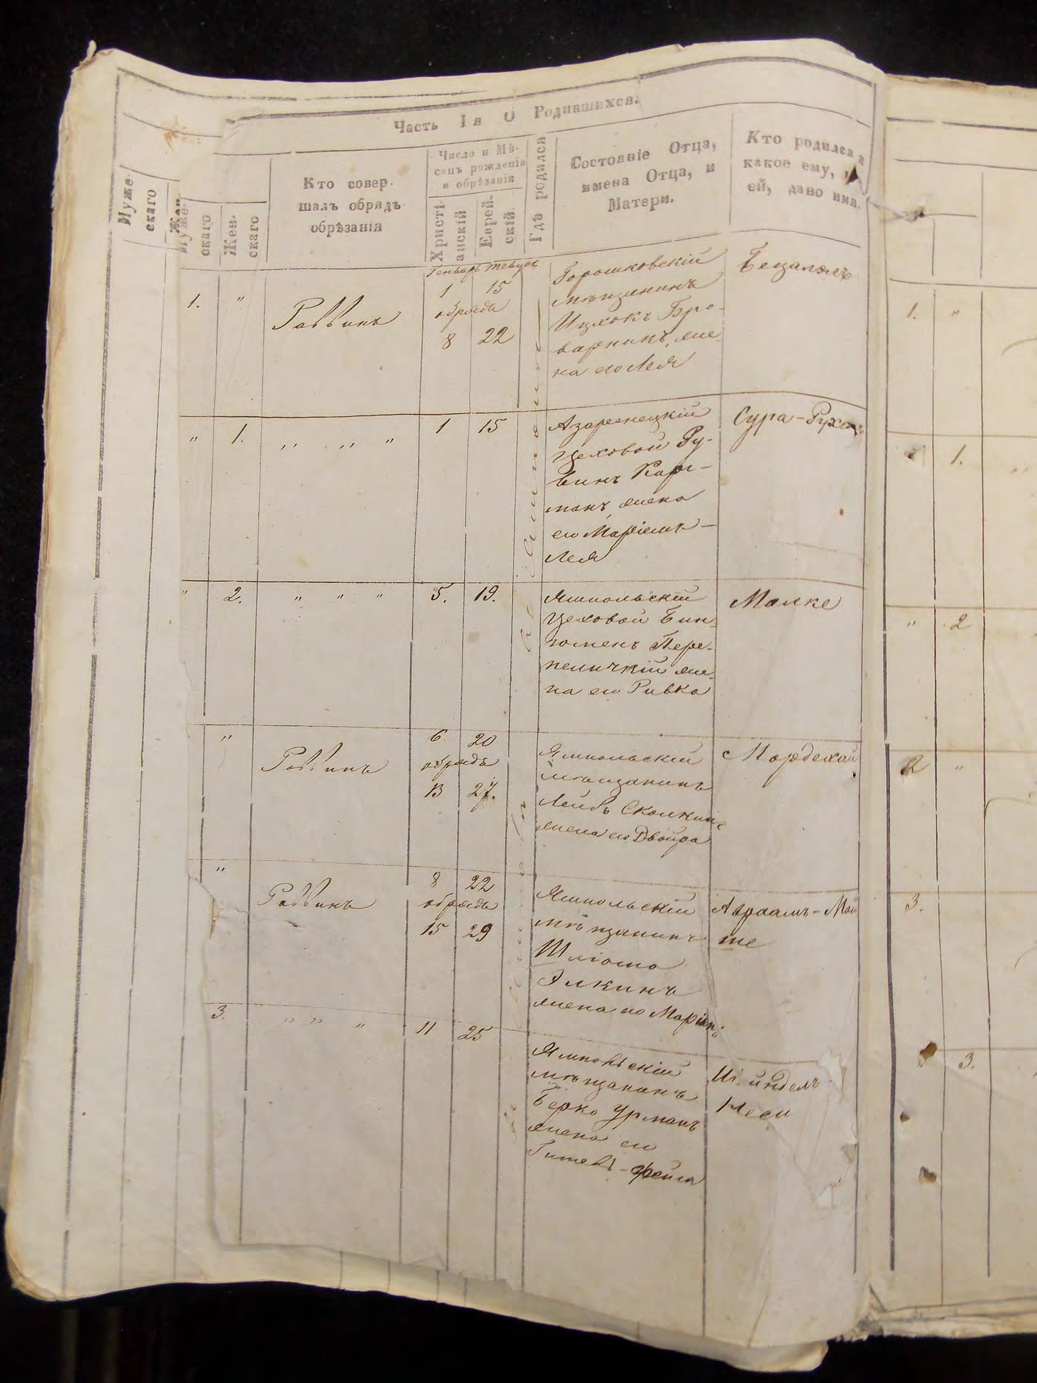 Часть Iя О Родившихся.
Мужескаго
Жен
Мужескаго
Женскаго
Кто совершалъ обрядъ обрѣзанія
Число и Мѣсяцъ рожденія и обрѣзанія
Христіанскій
Еврейскій.
Гдѣ родился
Состояніе Отца, имена Отца, и Матери.
Кто родился и какое ему, ей, дано имя.
1. "
Раввинъ
Генварь Тевусъ
1 15
обрядъ
8 22
Горошковскій
мѣщанинъ
Ицхокъ Бро-
варникъ, же
на его Лея
Бецалель
" 1.
" " "
1 15
Азаренецкій
Цеховой Ру-
бинъ
жена
его Маріемъ-
Лея
Сура-Рухель
" 2.
" " "
5. 19.
Ямпольскій
Цеховой Бин
Пере-
пелицкій же
на его Ривка
Малке
"
Раввинъ
6 20
обрядъ
13 27.
Ямпольскій
мѣщанинъ
Лейбъ
жена его Двойра
Мордехай
"
Раввинъ
8 22
обрядъ
15 29
Ямпольскій
мѣщанинъ
Шліома
Элкинъ
жена его
Авраамъ-Мой
ше
3.
" " "
11 25
Ямпольскій
мѣщанинъ
Берко Урманъ
жена ег
-Фейга
Шейндель
Неси
1. "
" 1.
" 2
2 "
3.
3.